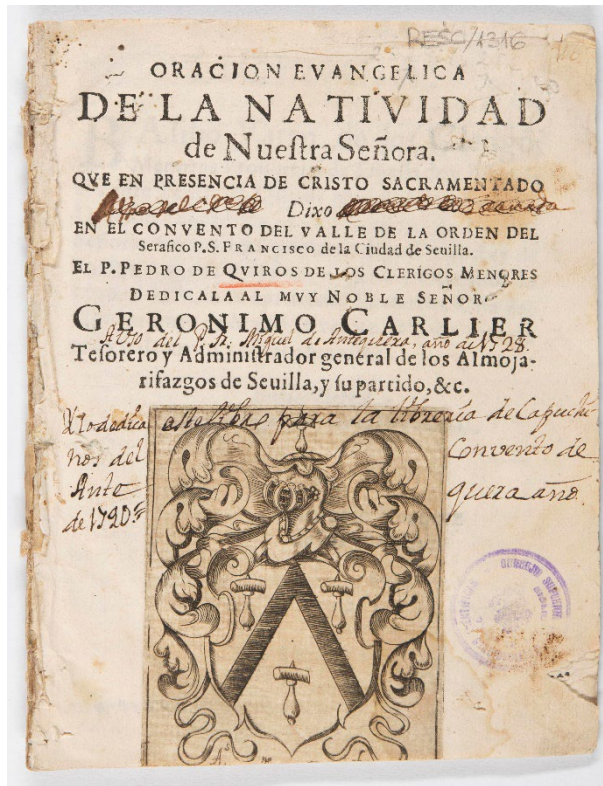 RESC/1316
ORACION EVANGELICA
DE LA NATIVIDAD
de Nueſtra Señora.
QVE EN PRESENCIA DE CRISTO SACRAMENTADO
Dixo
EN EL CONVENTO DEL VALLE DE LA ORDEN DEL
Serafico P.S. FRANCISCO de la Ciudad de Seuilla.
EL P. PEDRO DE QVIROS DE LOS CLERIGOS MENORES
DEDICALA AL MVY NOBLE SEÑOR
GERONIMO CARLIER
del P. Fr. Miguel de Antequera, año de 1728.
Teſorero y Adminiſtrador general de los Almoja-
rifazgos de Seuilla, y ſu partido, &c.
este libro para la libreria de Capuchi
nos del Convento de
Ante quera año
de 1790